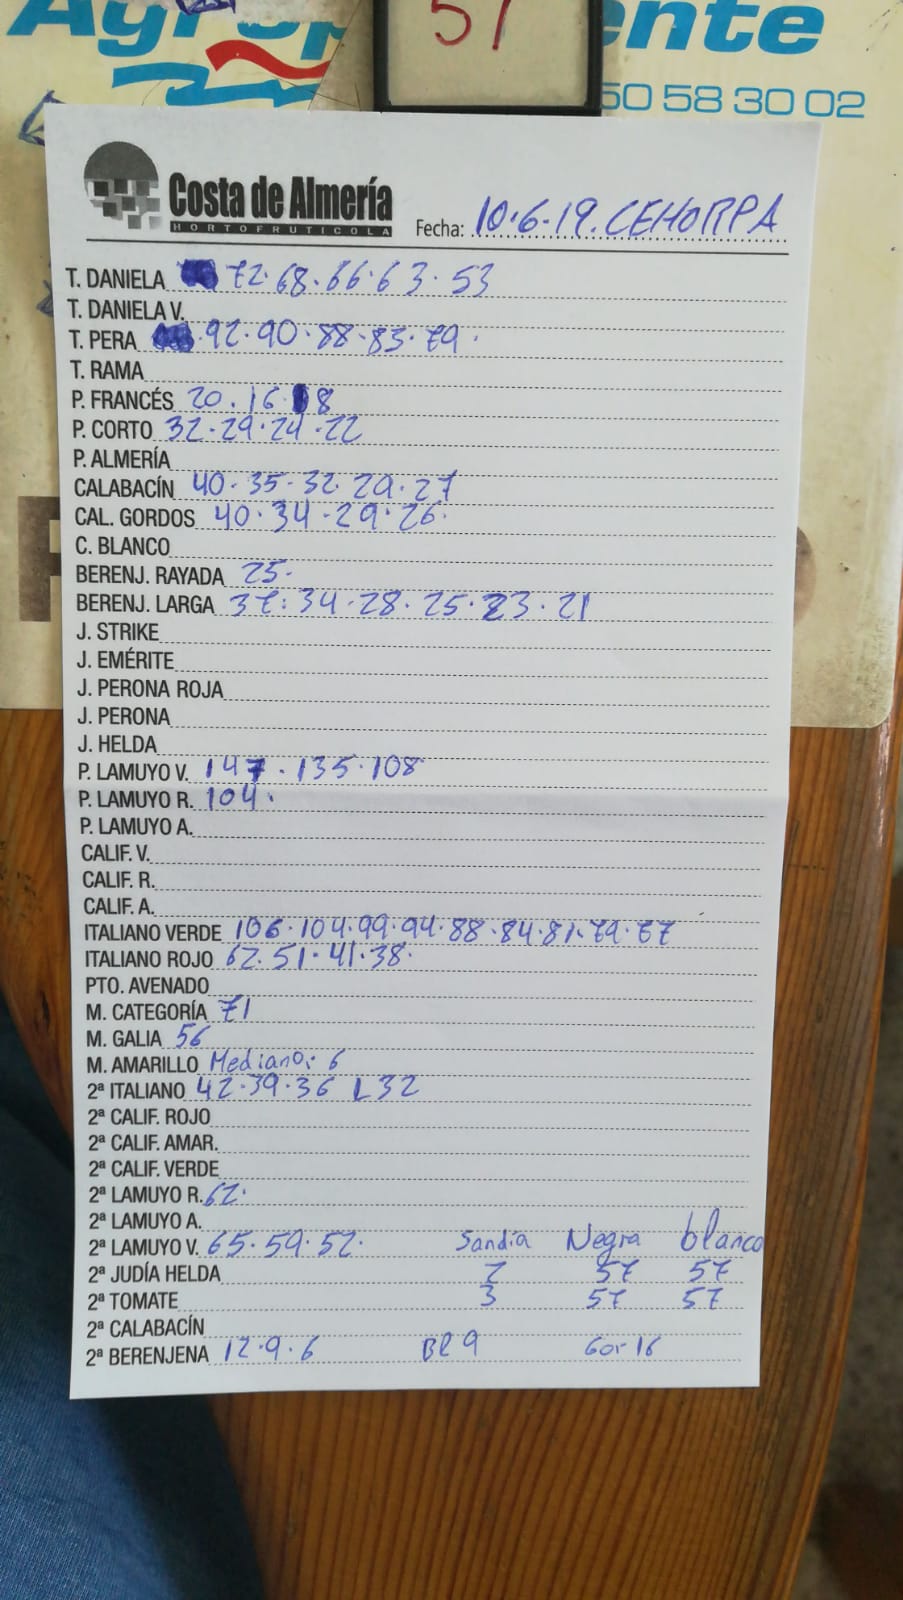 51
50 58 30 02
Costa de Almería
HORTOFRUTICOLA
Fecha: 10·6·19. CEHORPA
T. DANIELA 72·68·66·63·53
T. DANIELA V.
T. PERA 92·90·88·83·79·
T. RAMA
P. FRANCÉS 20·16·8
P. CORTO 32·29·24·22
P. ALMERÍA
CALABACÍN 40·35·32·29·27
CAL. GORDOS 40·34·29·26·
C. BLANCO
BERENJ. RAYADA 25·
BERENJ. LARGA 37·34·28·25·23·21
J. STRIKE
J. EMÉRITE
J. PERONA ROJA
J. PERONA
J. HELDA
P. LAMUYO V. 147·135·108
P. LAMUYO R. 104·
P. LAMUYO A.
CALIF. V.
CALIF. R.
CALIF. A.
ITALIANO VERDE 106·104·99·94·88·84·81·79·77
ITALIANO ROJO 62·51·41·38·
PTO. AVENADO
M. CATEGORÍA 71
M. GALIA 56
M. AMARILLO Mediano: 6
2ª ITALIANO 42·39·36 L32
2ª CALIF. ROJO
2ª CALIF. AMAR.
2ª CALIF. VERDE
2ª LAMUYO R. 62·
2ª LAMUYO A.
2ª LAMUYO V. 65·59·52· Sandia Negra blanco
2ª JUDÍA HELDA 2 57 57
2ª TOMATE 3 57 57
2ª CALABACÍN
2ª BERENJENA 12·9·6 Bl 9 Gor 16